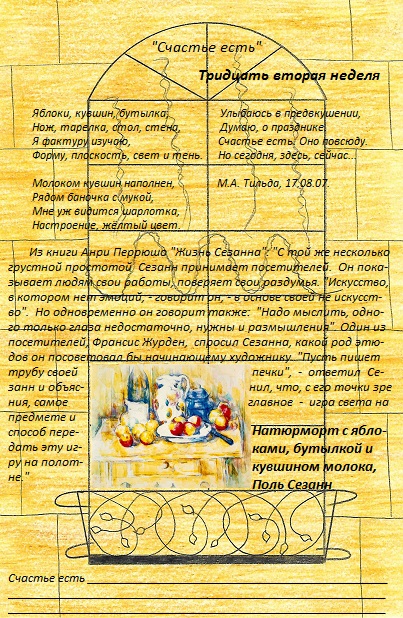 "Счастье есть"
Тридцать вторая неделя
Яблоки, кувшин, бутылка,
Нож, тарелка, стол, стена,
Я фактуру изучаю,
Форму, плоскость, свет и тень.
Молоком кувшин наполнен,
Рядом баночка с мукой,
Мне уж видится шарлотка,
Настроение, жёлтый цвет.
Улыбаюсь в предвкушении,
Думаю, о празднике.
Счастье есть! Оно повсюду.
Но сегодня, здесь, сейчас...
М.А. Тильда, 17.08.07.
Из книги Анри Перрюшо "Жизнь Сезанна": "С той же несколько
грустной простотой Сезанн принимает посетителей. Он пока-
зывает людям свои работы, поверяет свои раздумья. "Искусство,
в котором нет эмоций, - говорит он, - в основе своей не искусст-
во". Но одновременно он говорит также: "Надо мыслить, одно-
го только глаза недостаточно, нужны и размышления". Один из
посетителей, Франсис Журден, спросил Сезанна, какой род этю-
дов он посоветовал бы начинающему художнику. "Пусть пишет
трубу своей печки", - ответил Се-
занн и объяс- нил, что, с его точки зре
ния, самое главное - игра света на
предмете и
способ пере-
дать эту иг-
ру на полот-
не."
Натюрморт с ябло-
ками, бутылкой и
кувшином молока,
Поль Сезанн
Счастье есть